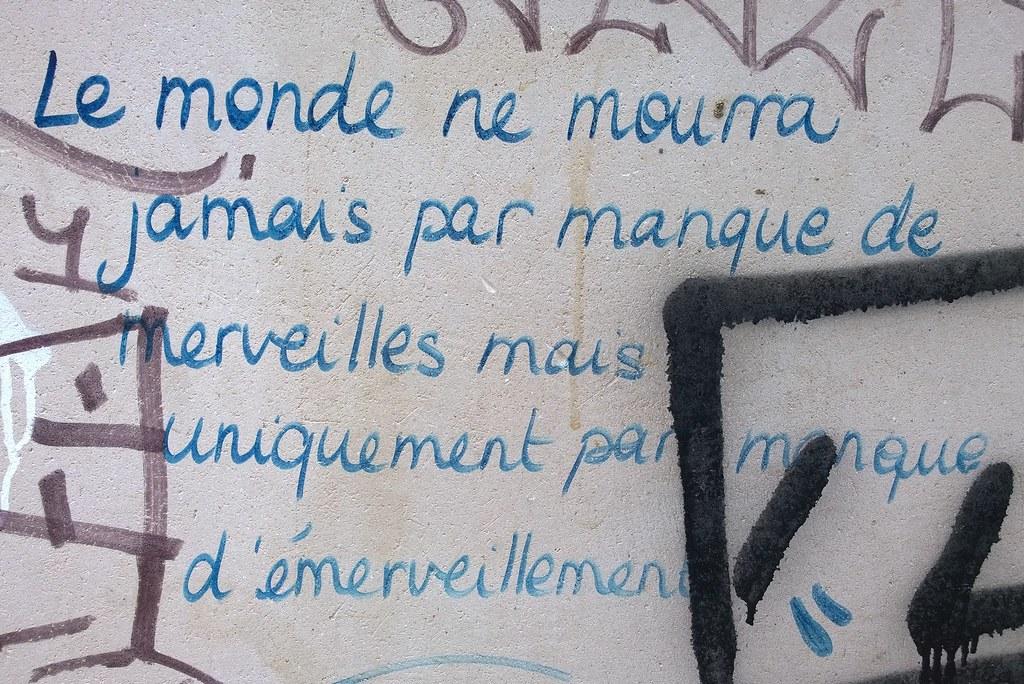 Le monde ne mourra
jamais par manque de
merveilles mais
uniquement par manque
d'émerveillement